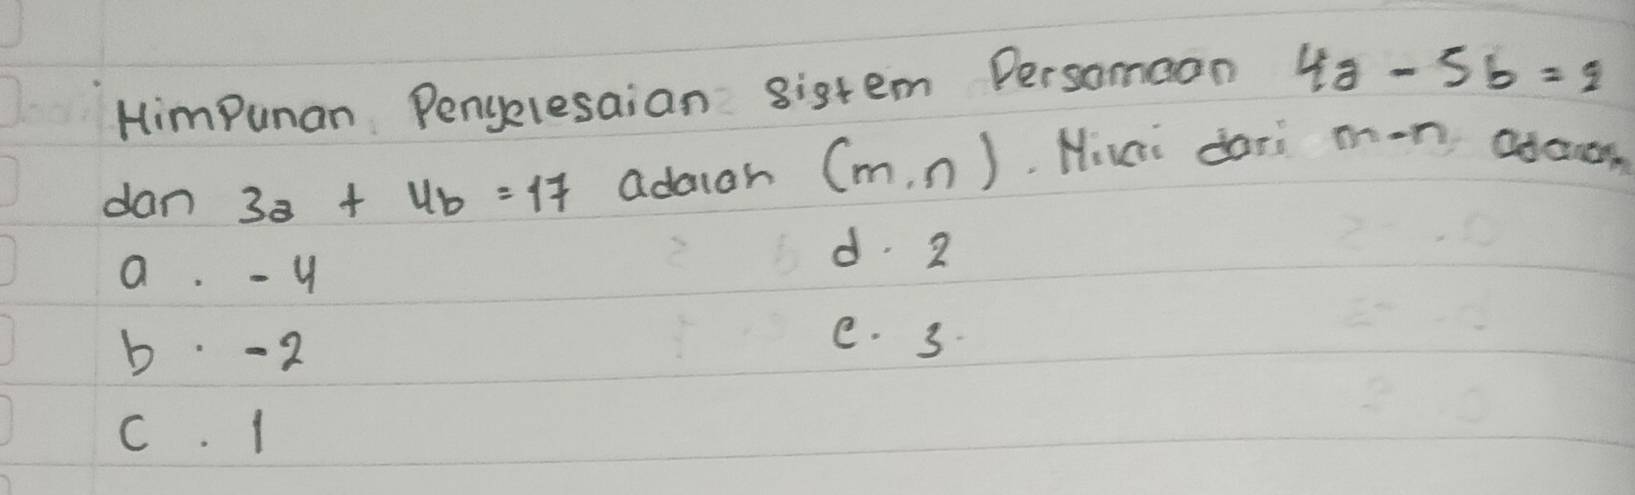 Himpunan Penyelesaian sistem Persamaan 4a - 5b = 2
dan 3a + 4b = 17 adalah (m,n). Nilai dari m-n adalah
a. -4 d. 2
b. -2 e. 3.
c. 1